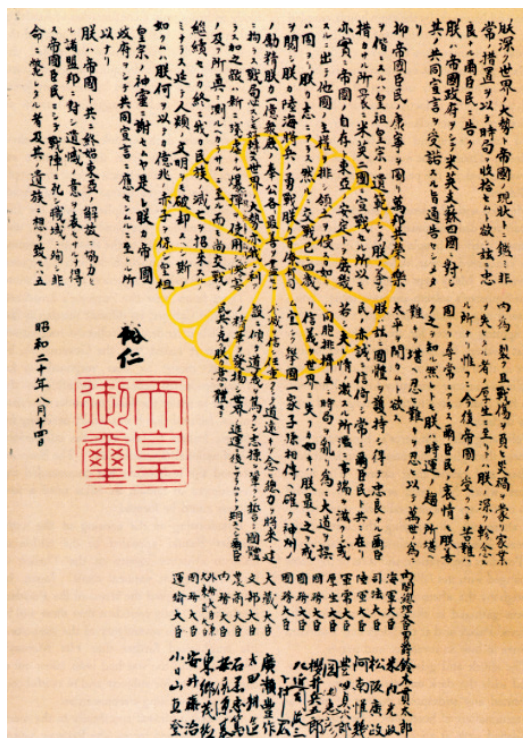 朕深ク世界ノ大勢ト帝國ノ現狀トニ鑑ミ非
常ノ措置ヲ以テ時局ヲ收拾セムト欲シ茲ニ忠
良ナル爾臣民ニ告ク
朕ハ帝國政府ヲシテ米英支蘇四國ニ對シ
其ノ共同宣言ヲ受諾スル旨通告セシメタリ
抑〻帝國臣民ノ康寧ヲ圖リ萬邦共榮ノ樂
ヲ偕ニスルハ皇祖皇宗ノ遺範ニシテ朕ノ拳々
措カサル所曩ニ米英二國ニ宣戰セル所以モ
亦實ニ帝國ノ自存ト東亞ノ安定トヲ庶幾
スルニ出テ他國ノ主權ヲ排シ領土ヲ侵スカ如
キハ固ヨリ朕カ志ニアラス然ルニ交戰已ニ四歲
ヲ閱シ朕カ陸海將兵ノ勇戰朕カ百僚有司
ノ勵精朕カ一億衆庶ノ奉公各〻最善ヲ盡セル
ニ拘ラス戰局必スシモ好轉セス世界ノ大勢亦我ニ利
アラス加之敵ハ新ニ殘虐ナル爆彈ヲ使用シテ
慘害ノ及フ所眞ニ測ルヘカラサルニ至ル而モ尚交戰ヲ
繼續セムカ終ニ我カ民族ノ滅亡ヲ招來スル
ノミナラス延テ人類ノ文明ヲモ破却スヘシ斯ノ
如クムハ朕何ヲ以テカ億兆ノ赤子ヲ保シ皇祖
皇宗ノ神靈ニ謝セムヤ是レ朕カ帝國
政府ヲシテ共同宣言ニ應セシムルニ至レル所
以ナリ
朕ハ帝國ト共ニ終始東亞ノ解放ニ協力セ
ル諸盟邦ニ對シ遺憾ノ意ヲ表セサルヲ得
ス帝國臣民ニシテ戰陣ニ死シ職域ニ殉シ非
命ニ斃レタル者及其ノ遺族ニ想ヲ致セハ五
內爲ニ裂ク且戰傷ヲ負ヒ災禍ヲ蒙リ家業
ヲ失ヒタル者ノ厚生ニ至リテハ朕ノ深ク軫念ス
ル所ナリ惟フニ今後帝國ノ受クヘキ苦難ハ
固ヨリ尋常ニアラス爾臣民ノ衷情モ朕善
ク之ヲ知ル然レトモ朕ハ時運ノ趨ク所堪ヘ
難キヲ堪ヘ忍ヒ難キヲ忍ヒ以テ萬世ノ爲ニ
太平ヲ開カムト欲ス
朕ハ茲ニ國體ヲ護持シ得テ忠良ナル爾臣
民ノ赤誠ニ信倚シ常ニ爾臣民ト共ニ在リ
若シ夫レ情ノ激スル所濫ニ事端ヲ滋クシ或
ハ同胞排擠互ニ時局ヲ亂リ爲ニ大道ヲ誤
リ信義ヲ世界ニ失フカ如キハ朕最モ之ヲ戒
ム宜シク擧國一家子孫相傳ヘ確ク神州ノ
不滅ヲ信シ任重クシテ道遠キヲ念ヒ總力ヲ將來ノ建
設ニ傾ケ道義ヲ篤クシ志操ヲ鞏クシ誓テ國體
ノ精華ヲ發揚シ世界ノ進運ニ後レサラムコトヲ期スヘシ爾臣
民其レ克ク朕カ意ヲ體セヨ
裕仁
天皇御璽
昭和二十年八月十四日
內閣總理大臣男爵鈴木貫太郎
海軍大臣 米內光政
司法大臣 松阪廣政
陸軍大臣 阿南惟幾
軍需大臣 豐田貞次郎
厚生大臣 岡田忠彥
國務大臣 櫻井兵五郎
國務大臣 左近司政三
國務大臣 下村宏
大藏大臣 廣瀨豐作
文部大臣 太田耕造
農商大臣 石黑忠篤
內務大臣 安倍源基
外務大臣兼大東亞大臣 東鄉茂德
國務大臣 安井藤治
運輸大臣 小日山直登